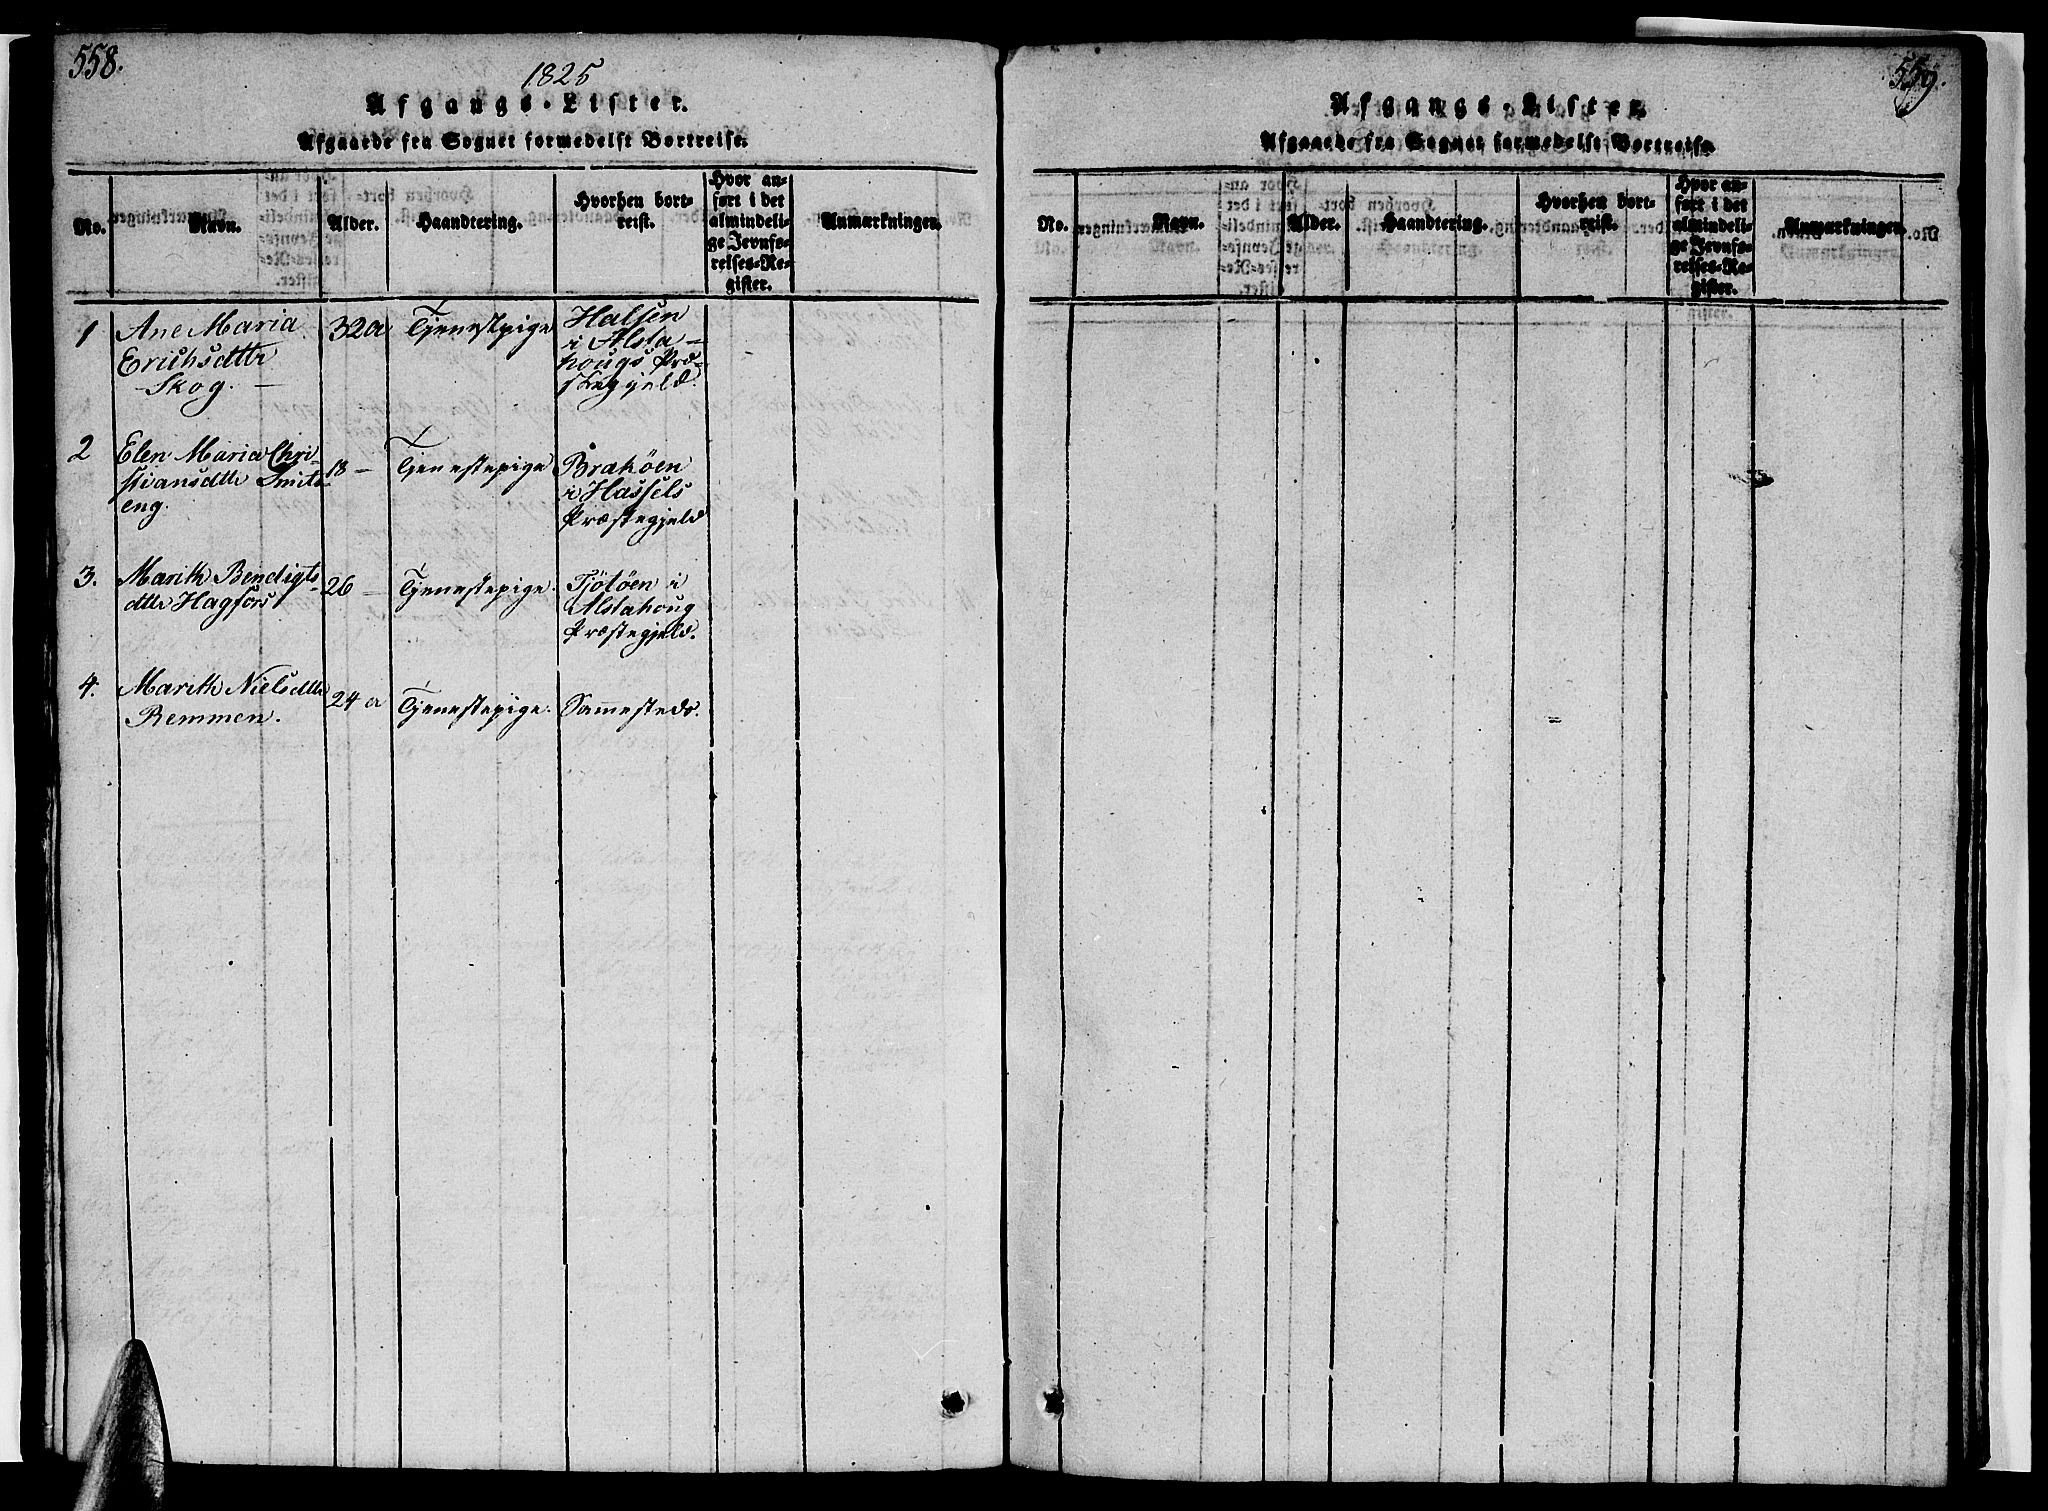 558.
1825
Afgangs-Lister.
Afgaaede fra Sognet formedelst Bortreise.
No. Navn. Alder. Haandtering. Hvorhen bort-
reist. Hvor an-
ført i det
almindeli-
ge Jevnfø-
relses-Re-
gister. Anmærkninger.
1 Ane Maria
Erichsdttr
Skog. 32 a Tjenestpige Halsen
i Alsta-
hougs Præ-
stegjeld.
2 Elen Maria Chri-
stiansdttr
eng. 18 - Tjenestepige
i Hassels
Præstegjeld
3. Marith Bendigts
dttr Hagfors 26 - Tjenestepige. Tjötöen i
Alstahoug
Præstegjeld.
4. Marith Nielsdttr
Remmen. 24 a Tjenestepige. Sammesteds.
559.
Afgangs-Lister.
Afgaaede fra Sognet formedelst Bortreise.
No. Navn. Alder. Haandtering. Hvorhen bort-
reist. Hvor an-
ført i det
almindeli-
ge Jevnfø-
relses-Re-
gister. Anmærkninger.